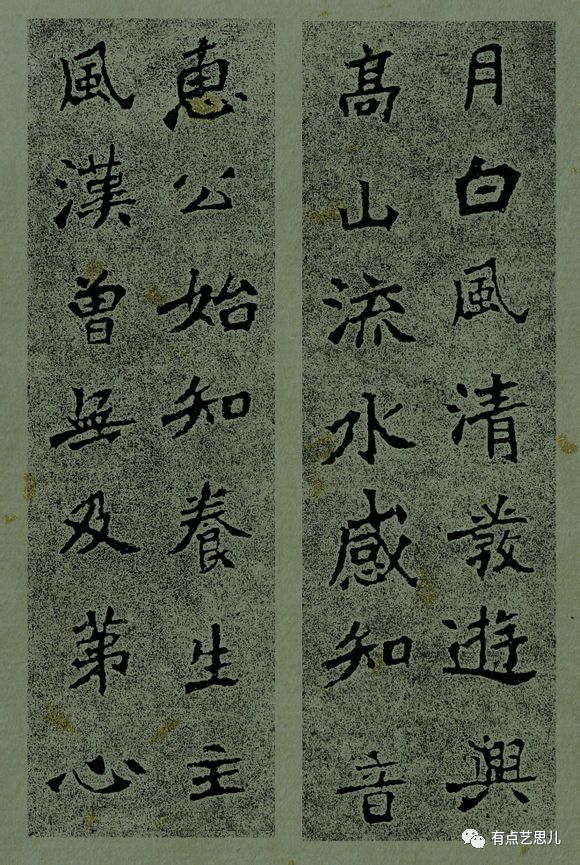 月白風清發遊興
高山流水感知音
惠公始知養生主
風漢曾無及第心
有点艺思儿